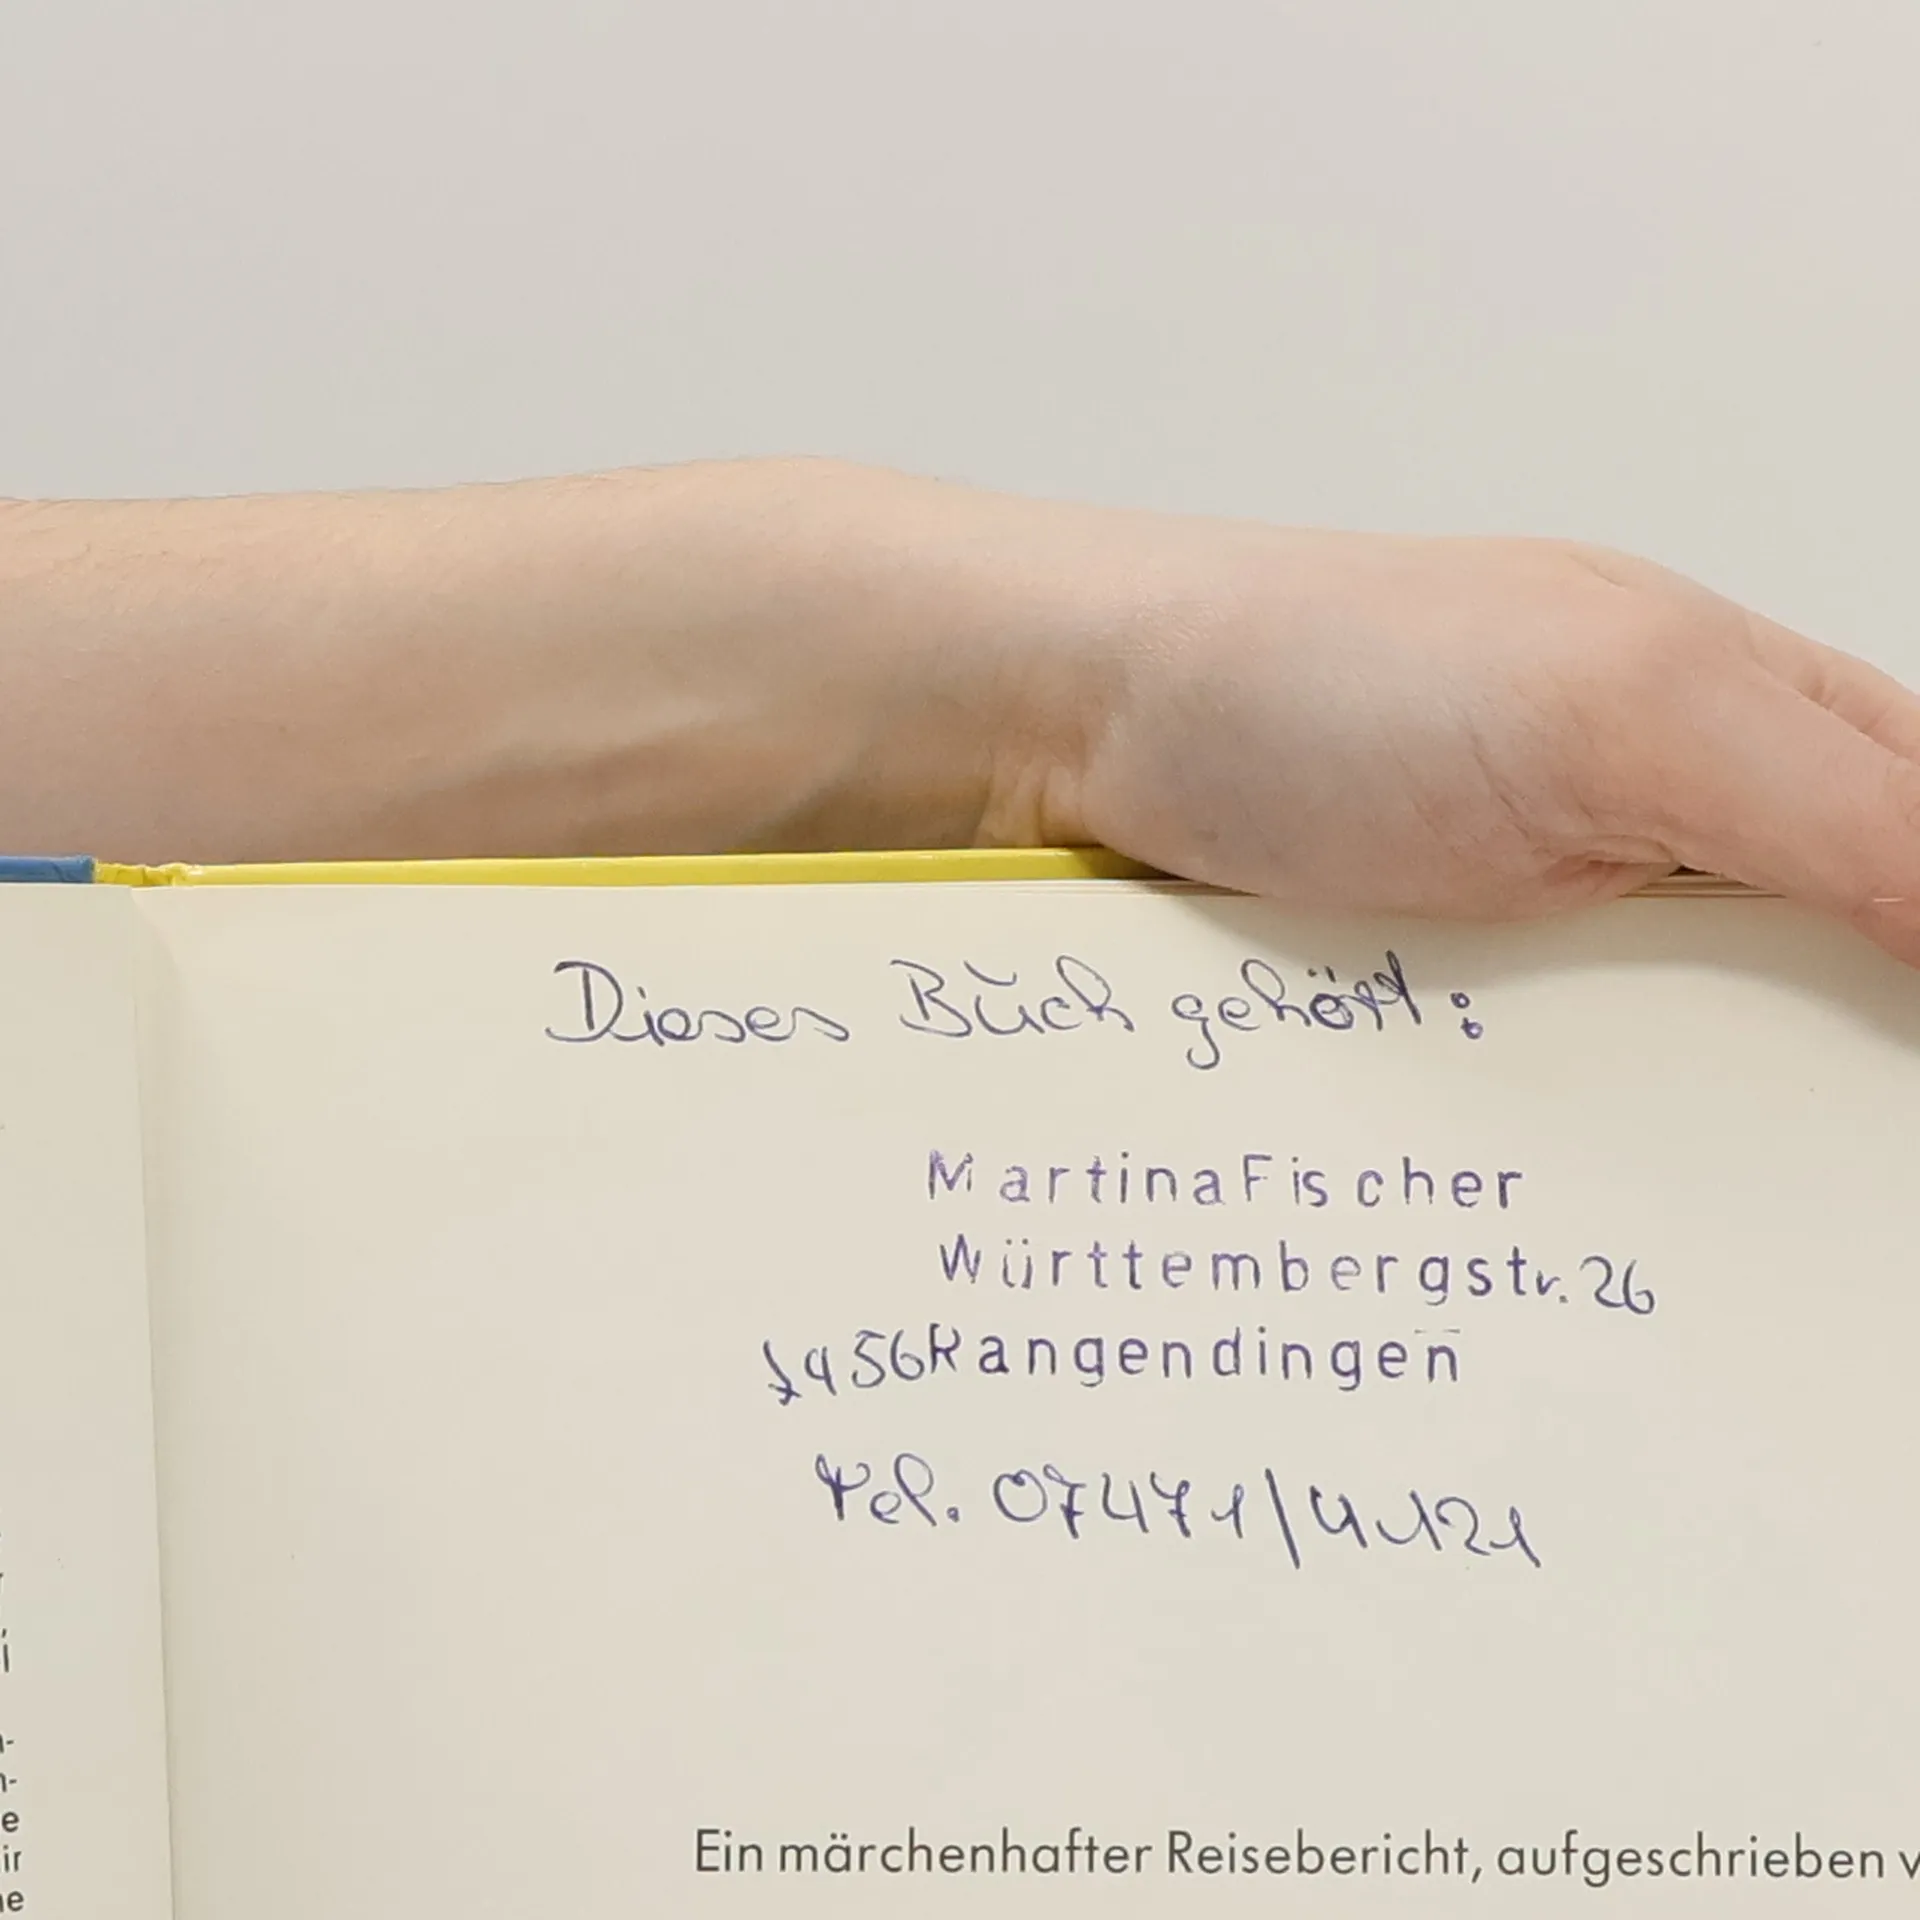 Dieses Buch gehört:
Martina Fischer
Württembergstr. 26
Rangendingen
Tel. 07471/
Ein märchenhafter Reisebericht, aufgeschrieben